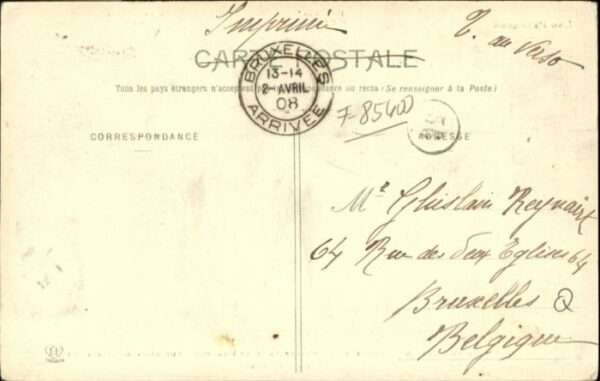 Imprimé
T. au verso
CARTE POSTALE
Tous les pays étrangers n'acceptent pas la correspondance au recto (Se renseigner à la Poste)
BRUXELLES
13-14
2 AVRIL
08
ARRIVÉE
F 85400
CORRESPONDANCE
ADRESSE
Mr Ghislain Reynaert
64 Rue des deux Eglises 64
Bruxelles
Q
Belgique